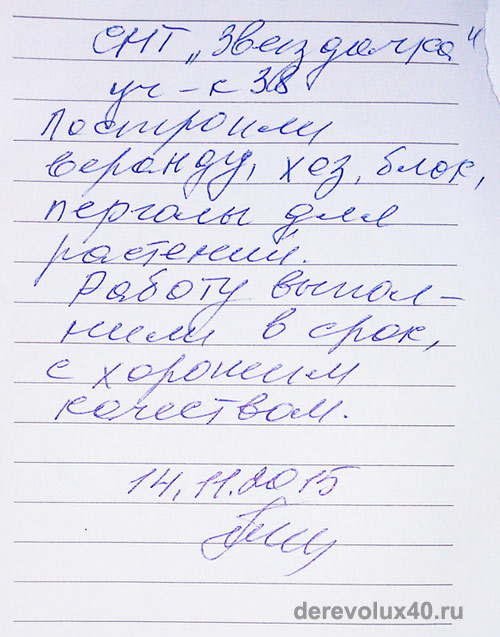 СНТ „Звездочка"
уч-к 38
Построили
веранду, хоз. блок,
перголы для
растений.
Работу выпол-
нили в срок,
с хорошим
качеством.
14.11.2015
derevolux40.ru